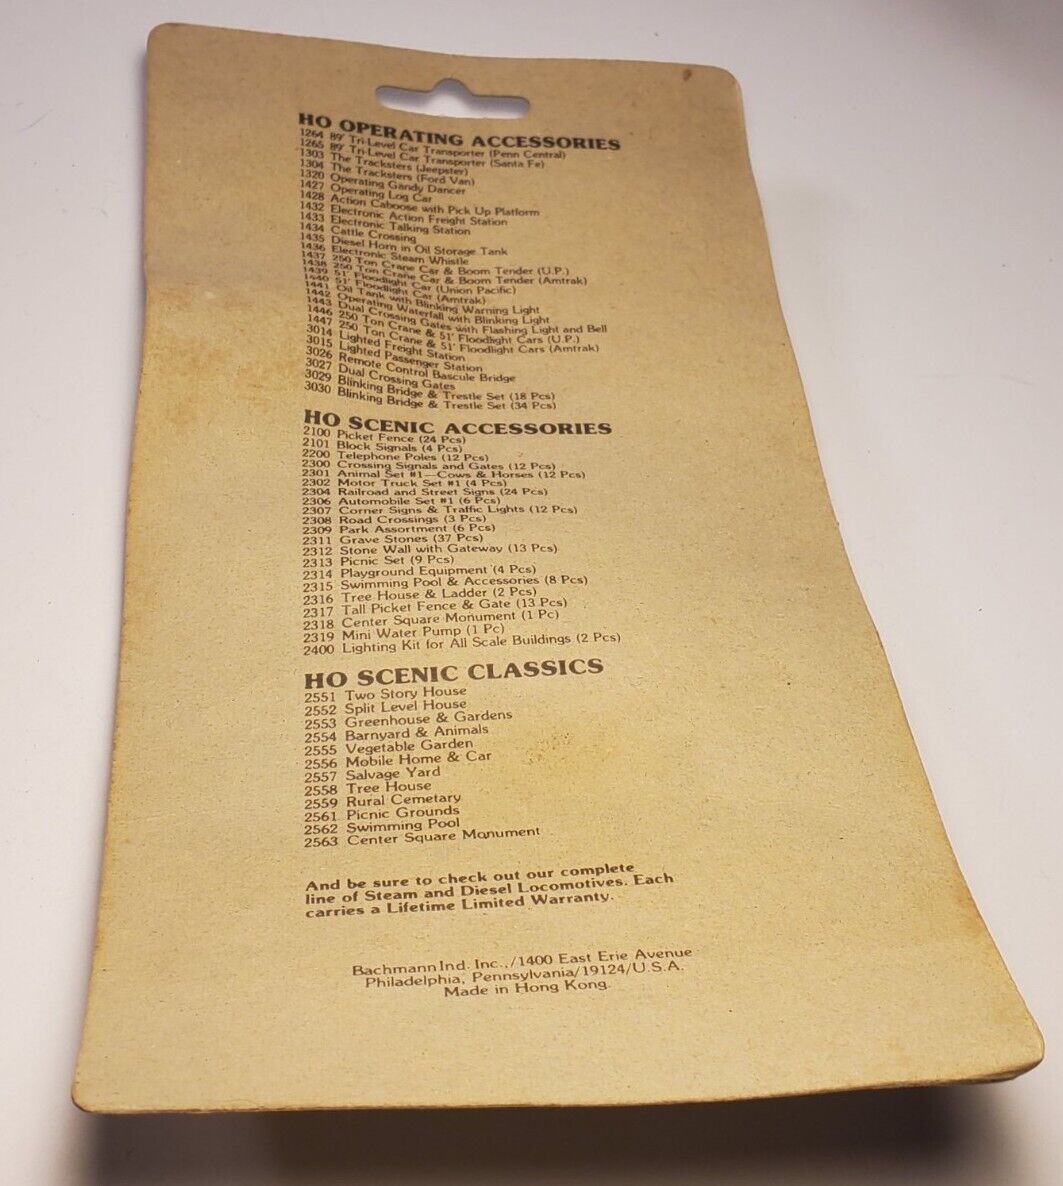 HO OPERATING ACCESSORIES
1264 89' Tri-Level Car Transporter (Penn Central)
1265 89' Tri-Level Car Transporter (Santa Fe)
1303 The Tracksters (Jeepster)
1304 The Tracksters (Ford Van)
1320 Operating Gandy Dancer
1427 Operating Log Car
1428 Action Caboose with Pick Up Platform
1432 Electronic Action Freight Station
1433 Electronic Talking Station
1434 Cattle Crossing
1435 Diesel Horn in Oil Storage Tank
1436 Electronic Steam Whistle
1437 250 Ton Crane Car & Boom Tender (U.P.)
1438 250 Ton Crane Car & Boom Tender (Amtrak)
1439 51' Floodlight Car (Union Pacific)
1440 51' Floodlight Car (Amtrak)
1441 Oil Tank with Blinking Warning Light
1442 Operating Waterfall with Blinking Light
1443 Dual Crossing Gates with Flashing Light and Bell
1446 250 Ton Crane & 51' Floodlight Cars (U.P.)
1447 250 Ton Crane & 51' Floodlight Cars (Amtrak)
3014 Lighted Freight Station
3015 Lighted Passenger Station
3026 Remote Control Bascule Bridge
3027 Dual Crossing Gates
3029 Blinking Bridge & Trestle Set (18 Pcs)
3030 Blinking Bridge & Trestle Set (34 Pcs)
HO SCENIC ACCESSORIES
2100 Picket Fence (24 Pcs)
2101 Block Signals (4 Pcs)
2200 Telephone Poles (12 Pcs)
2300 Crossing Signals and Gates (12 Pcs)
2301 Animal Set #1—Cows & Horses (12 Pcs)
2302 Motor Truck Set #1 (4 Pcs)
2304 Railroad and Street Signs (24 Pcs)
2306 Automobile Set #1 (6 Pcs)
2307 Corner Signs & Traffic Lights (12 Pcs)
2308 Road Crossings (3 Pcs)
2309 Park Assortment (6 Pcs)
2311 Grave Stones (37 Pcs)
2312 Stone Wall with Gateway (13 Pcs)
2313 Picnic Set (9 Pcs)
2314 Playground Equipment (4 Pcs)
2315 Swimming Pool & Accessories (8 Pcs)
2316 Tree House & Ladder (2 Pcs)
2317 Tall Picket Fence & Gate (13 Pcs)
2318 Center Square Monument (1 Pc)
2319 Mini Water Pump (1 Pc)
2400 Lighting Kit for All Scale Buildings (2 Pcs)
HO SCENIC CLASSICS
2551 Two Story House
2552 Split Level House
2553 Greenhouse & Gardens
2554 Barnyard & Animals
2555 Vegetable Garden
2556 Mobile Home & Car
2557 Salvage Yard
2558 Tree House
2559 Rural Cemetary
2561 Picnic Grounds
2562 Swimming Pool
2563 Center Square Monument
And be sure to check out our complete
line of Steam and Diesel Locomotives. Each
carries a Lifetime Limited Warranty.
Bachmann Ind. Inc../1400 East Erie Avenue
Philadelphia, Pennsylvania/19124/U.S.A.
Made in Hong Kong.